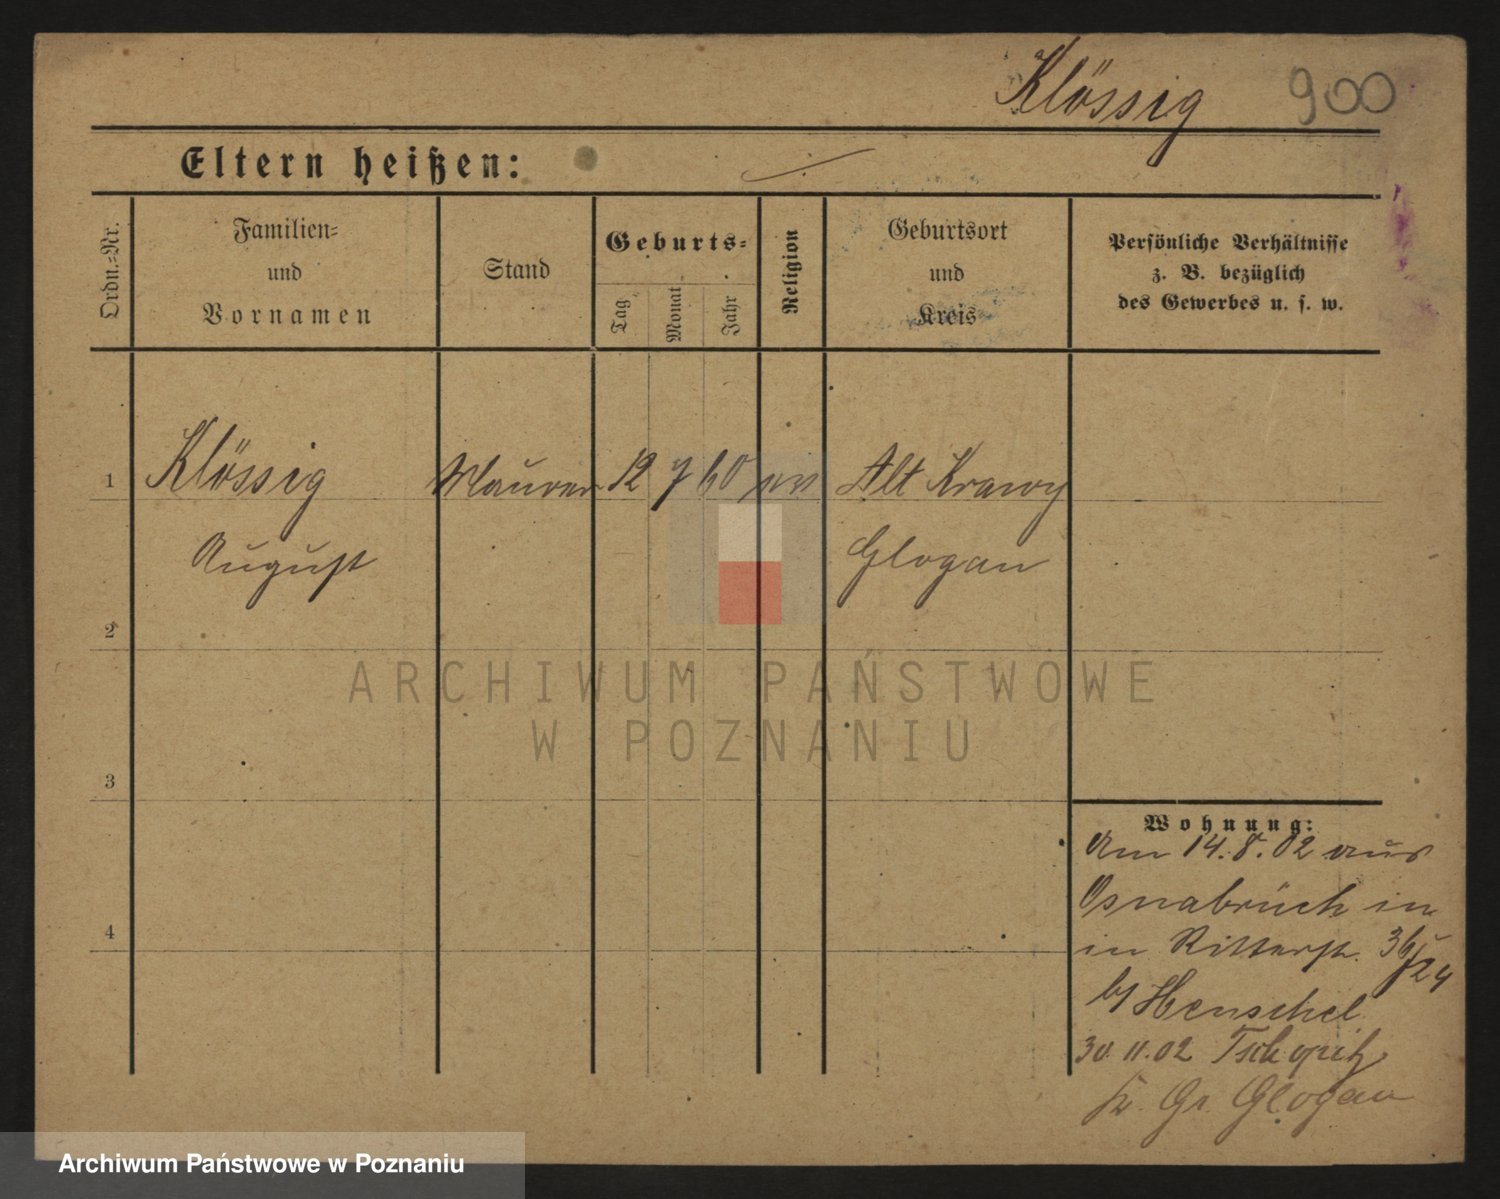 Klössig 900
Eltern heißen:
Ordn.=Nr.
Familien=
und
Vornamen
Stand
Geburts=
Tag
Monat
Jahr
Religion
Geburtsort
und
Kreis
Persönliche Verhältnisse
z. B. bezüglich
des Gewerbes u. s. w.
1 Klössig Maurer 12 7 60 ev Alt Krawy
August Glogau
2
3
4
Wohnung:
Am 14.8.02 aus
Osnabrück in
in Ritterstr. 36/24
b/ Henschel
30.11.02
Kr. Gr. Glogau
ARCHIWUM PAŃSTWOWE
W POZNANIU
Archiwum Państwowe w Poznaniu